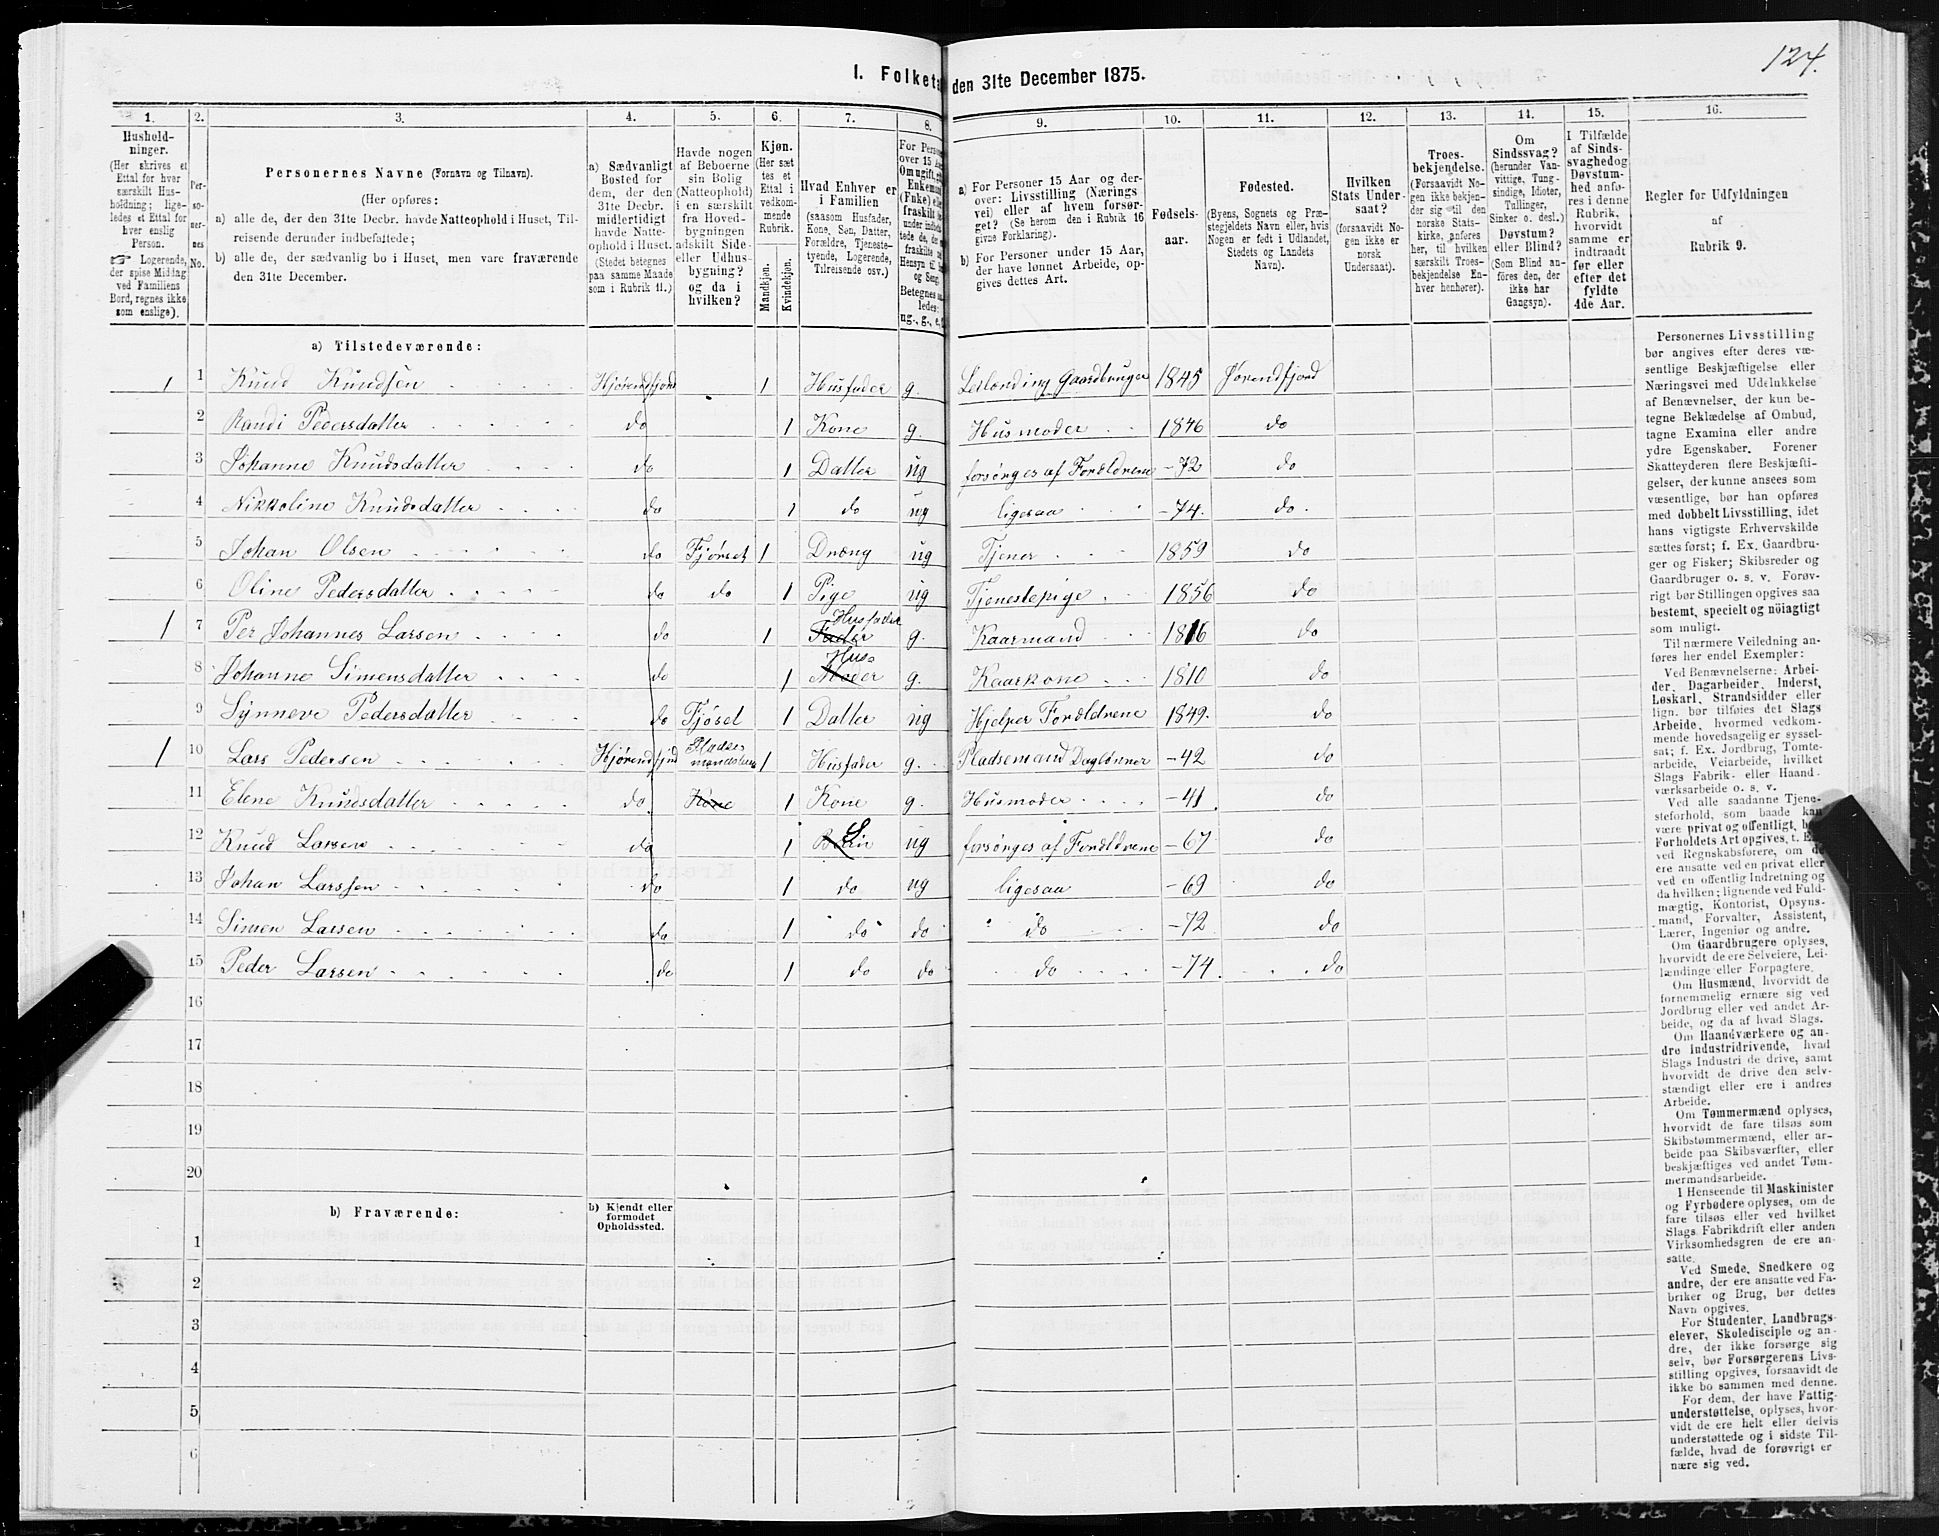 124.
I. Folketæ den 31te December 1875.
1. 2. 3. 4. 5. 6. 7. 8. 9. 10. 11. 12. 13. 14. 15. 16.
Hushold-
ninger.
(Her skrives et
Ettal for hver
særskilt Hus-
holdning; lige-
ledes et Ettal for
hver enslig
Person.
☞ Logerende,
der spise Middag
ved Familiens
Bord, regnes ikke
som enslige).
Per-
so-
ner-
nes
No.
Personernes Navne (Fornavn og Tilnavn).
(Her opføres:
a) alle de, der den 31te Decbr. havde Natteophold i Huset, Til-
reisende derunder indbefattede;
b) alle de, der sædvanlig bo i Huset, men vare fraværende
den 31te December.
a) Sædvanligt
Bosted for
dem, der den
31te Decbr.
midlertidigt
havde Natte-
ophold i Huset.
(Stedet betegnes
paa samme Maade
som i Rubrik 11.)
Havde nogen
af Beboerne
sin Bolig
(Natteophold)
i en særskilt
fra Hoved-
bygningen
adskilt Side-
eller Udhus-
bygning?
og da i
hvilken?
Kjøn.
(Her sæt
tes et
Ettal i
vedkom-
mende
Rubrik.
Mandkjøn.
Kvindekjøn.
Hvad Enhver er
i Familien
(saasom Husfader,
Kone, Søn, Datter,
Forældre, Tjeneste-
tyende, Logerende,
Tilreisende osv.)
For Perso
over 15 Aa
Om ugift, g
Enkeman
(Fnke) elle
fraskilt
Betegnes
ledes:
ug., g., e.,
a) For Personer 15 Aar og der-
over: Livsstilling (Nærings
vei) eller af hvem forsør-
get? (Se herom den i Rubrik 16
givne Forklaring).
b) For Personer under 15 Aar,
der have lønnet Arbeide, op-
gives dettes Art.
Fødsels-
aar.
Fødested.
(Byens, Sognets og Præ-
stegjeldets Navn eller, hvis
Nogen er født i Udlandet,
Stedets og Landets
Navn).
Hvilken
Stats Under-
saat?
(forsaavidt No-
gen ikke er
norsk
Undersaat).
Troes-
bekjendelse.
(Forsaavidt No-
gen ikke bekjen-
der sig til den
norske Stats-
kirke, anføres
her, til hvilken
særskilt Troes-
bekjendelse En-
hver henhører).
Om
Sindssvag?
(herunder Van-
vittige, Tung-
sindige, Idioter,
Tullinger,
Sinker o. desl.)
Døvstum?
eller Blind?
(Som Blind an-
føres den, der
ikke har
Gangsyn).
I Tilfælde
af Sinds-
svaghedog
Døvstum-
hed anfø-
res i denne
Rubrik,
hvorvidt
samme er
indtraadt
før eller
efter det
fyldte
4de Aar.
Regler for Udfyldningen
af
Rubrik 9.
a) Tilstedeværende:
1 1 Knud Knudsen Hjørendfjord 1 Husfader g. Leilænding Gaardbruger 1845 Jørendfjord
2 Randi Pedersdatter do 1 Kone g. Husmoder 1846 do
3 Johanne Knudsdatter do 1 Datter ug forsørges af Forældrene -72 do
4 Nikkoline Knudsdatter do 1 do ug ligesaa -74. do.
5 Johan Olsen do Fjøset 1 Dræng ug Tjener 1859 do
6 Oline Pedersdatter do do 1 Pige ug Tjenestepige 1856 do
1 7 Per Johannes Larsen do 1 Fader Husfader g. Kaarmand 1816 do
8 Johanne Simensdatter do 1 Hus- Moder g. Kaarkone 1810 do
9 Synneve Pedersdatter do Fjøset 1 Datter ug Hjelper Forældrene 1849. do
1 10 Lars Pedersen Hjørendfjord Pladsemandstuen 1 Husfader g. Pladsemand Daglønner -42 do
11 Elene Knudsdatter do Kone 1 Kone g. Husmoder -41 do
12 Knud Larsen do 1 ug forsørges af Forældrene -67 do
13 Johan Larssen do 1 do ug ligesaa -69 do
14 Simen Larsen do 1 do do do -72 do
15 Peder Larsen do 1 do do do -74 do
16
17
18
19
20
b) Fraværende:
b) Kjendt eller
formodet
Opholdssted.
1
2
3
4
5
6
Personernes Livsstilling
bør angives efter deres væ-
sentlige Beskjæftigelse eller
Næringsvei med Udelukkelse
af Benævnelser, der kun be-
tegne Beklædelse af Ombud,
tagne Examina eller andre
ydre Egenskaber. Forener
Skatteyderen flere Beskjæfti-
gelser, der kunne ansees som
væsentlige, bør han opføres
med dobbelt Livsstilling, idet
hans vigtigste Erhvervskilde
sættes først; f. Ex. Gaardbru-
ger og Fisker; Skibsreder og
Gaardbruger o. s. v. Forøv-
rigt bør Stillingen opgives saa
bestemt, specielt og nöiagtigt
som muligt.
Til nærmere Veiledning an-
føres her endel Exempler:
Ved Benævnelserne: Arbei-
der, Dagarbeider, Inderst,
Løskarl, Strandsidder eller
lign. bør tilføies det Slags
Arbeide, hvormed vedkom-
mende hovedsagelig er syssel-
sat; f. Ex. Jordbrug, Tomte-
arbeide, Veiarbeide, hvilket
Slags Fabrik- eller Haand-
værksarbeide o. s. v.
Ved alle saadanne Tjene-
steforhold, som baade kan
være privat og offentligt,
Forholdets Art opgives, t. Ex.
ved Regnskabsførere, om de
ere ansatte ved en privat eller
ved en offentlig Indretning og
da hvilken; lignende ved Fuld-
mægtig, Kontorist, Opsyns-
mand, Forvalter, Assistent,
Lærer, Ingeniør og andre.
Om Gaardbrugere oplyses,
hvorvidt de ere Selveiere, Lei-
lændinge eller Forpagtere.
Om Husmænd, hvorvidt de
fornemmelig ernære sig ved
Jordbrug eller ved andet Ar-
beide, og da af hvad Slags.
Om Haandværkere og an-
dre Industridrivende, hvad
Slags Industri de drive, samt
hvorvidt de drive den selv-
stændigt eller ere i andres
Arbeide.
Om Tømmermænd oplyses,
hvorvidt de fare tilsøs som
Skibstømmermænd, eller ar-
beide paa Skibsværfter, eller
beskjæftiges ved andet Tøm-
mermandsarbeide.
I Henseende til Maskinister
og Fyrbødere oplyses, om de
fare tilsøs eller ved hvilket
Slags Fabrikdrift eller anden
Virksomhedsgren de ere an-
satte.
Ved Smede, Snedkere og
andre, der ere ansatte ved Fa-
briker og Brug, bør dettes
Navn opgives.
For Studenter, Landbrugs-
elever, Skoledisciple og an-
dre, der ikke forsørge sig
selv, bør Forsørgerens Livs-
stilling opgives, forsaavidt de
ikke bo sammen med denne.
For dem, der have Fattig-
understøttelse, oplyses, hvor-
vidt de ere helt eller delvis
understøttede og i sidste Til-
fælde, hvad de forøvrigt er
nære sig ved.